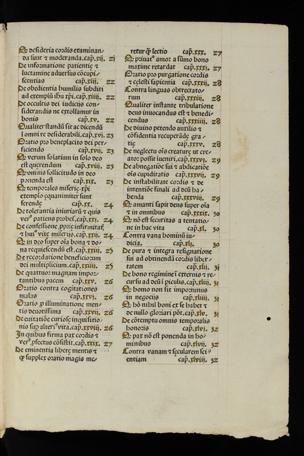 Qd desideria cordis examinan-
da sunt & moderanda. cap. xi. 21
De informatione patientie &
luctamine aduersus cōcupi-
scentias cap. xii. 22
De obedientia humilis subditi
ad exemplū ihū xpi. cap. xiii. 22
De occultis dei iudiciis con-
siderandis ne extollamur in
bonis cap. xv. 22
Qualiter standū sit ac dicendū
ī omni re desiderabili. cap. xvi. 23
Oratio pro beneplacito dei per-
ficiendo cap. xvii. 23
Qd verum solatium in solo deo
est querendum cap. xviii. 23
Qd omnis sollicitudo in deo
ponenda est cap. xix. 23
Qd temporales miserię xpi
exemplo equanimiter sunt
ferende cap. xx. 24
De tolerantia iniuriarū & quis
verꝰ patiens probeť. cap. xxi. 24
De confessione proprie infirmitať
& huiꝰ vite miseriis. cap. xxii. 24
Qd in deo super oīa bona & do-
na requiescendū est. cap. xxiii. 25
De recordatione beneficiorum
dei multiplicium. cap. xxiiii. 25
De quattuor magnam impor-
tantibus pacem cap. xxv. 26
Oratio contra cogitationes
malas cap. xxvi. 26
Oratio pro illuminatione men-
tis deuotissima cap. xxvii. 26
De euitatiōe curiose inquisitio-
nis super alterius vita. cap. xxviii. 26
In quibus firma pax cordis &
verꝰ profectus cōsistit. cap. xxix. 27
De eminentia liberę mentis &
quā supplex oratio magis me-
retur quā lectio cap. xxx. 27
Qd priuatꝰ amor a summo bono
maxime retardat cap. xxxi. 27
Oratio pro purgatione cordis
& celesti sapientia cap. xxxii. 28
Contra linguas obtrectato-
rum cap. xxxiii. 28
Qualiter instante tribulatione
deus inuocandus est & benedi-
cendus cap. xxxiiii. 28
De diuino petendo auxilio &
cōfidentia recuperādę gra-
tię cap. xxxv. 28
De neglectu oīs creature ut cre-
ator possit inueniri. cap. xxxvi. 29
De abnegatiōe sui & abdicatiōe
oīs cupiditatis cap. xxxvii. 29
De instabilitate cordis & de
intentiōe finali ad deū ha-
benda cap. xxxviii. 29
Qd amanti sapit deus super oīa
& in omnibus cap. xxxix. 30
Qd nō est securitas a tentatio-
ne in hac vita cap. xl. 30
Contra vana hominū iu-
dicia cap. xli. 30
De pura & integra resignatione
sui ad obtinendā cordis liber-
tatem cap. xlii. 31
De bono regimine ī externis & re-
cursu ad deū ī periculis. cap. xliii. 31
Qd homo non sit importunus
in negociis cap. xliiii. 31
Qd hō nihil boni ex se habet &
de nullo gloriari pōt. cap. xlv. 31
De cōtemptu omnis temporalis
honoris cap. xlvi. 32
Qd pax nō est ponenda in ho-
minibus cap. xlvii. 32
Contra vanam & secularem sci-
entiam cap. xlviii. 32